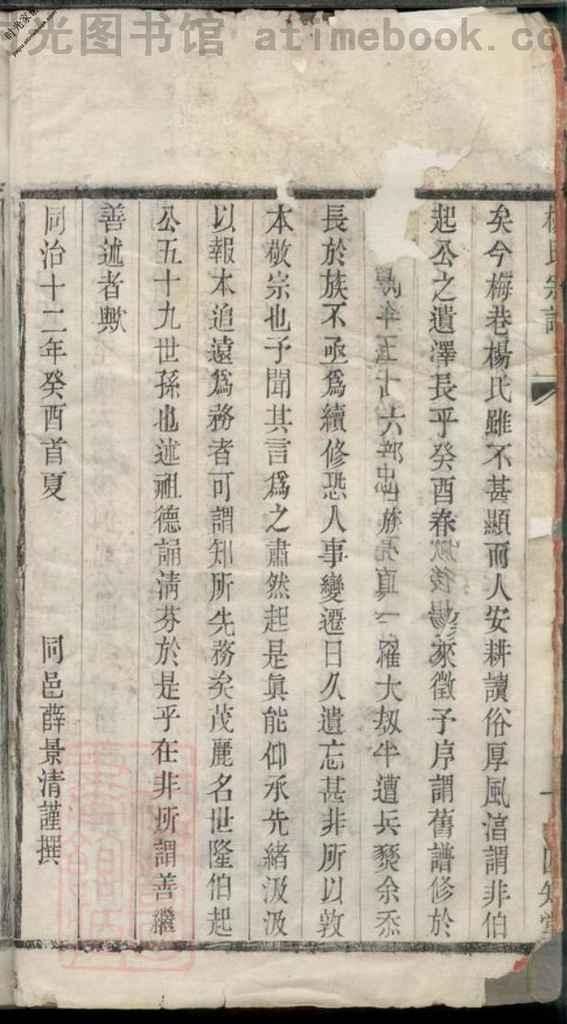 时光图书馆 atimebook.co
楊氏宗譜
矣今梅巷楊氏雖不甚顯而人安耕讀俗厚風湻謂非伯
起公之遺澤長乎癸酉春 後 來徵予序謂舊譜修於
年 十六 世族 真 罹大刼半遭兵燹余忝
長於族不亟爲續修恐人事變遷日久遺忘甚非所以敦
本敬宗也予聞其言爲之肅然起是眞能仰承先緒汲汲
以報本追遠爲務者可謂知所先務矣茂麗名世隆伯起
公五十九世孫也述祖德誦淸芬於是乎在非所謂善繼
善述者歟
同治十二年癸酉首夏 同邑薛景清謹撰